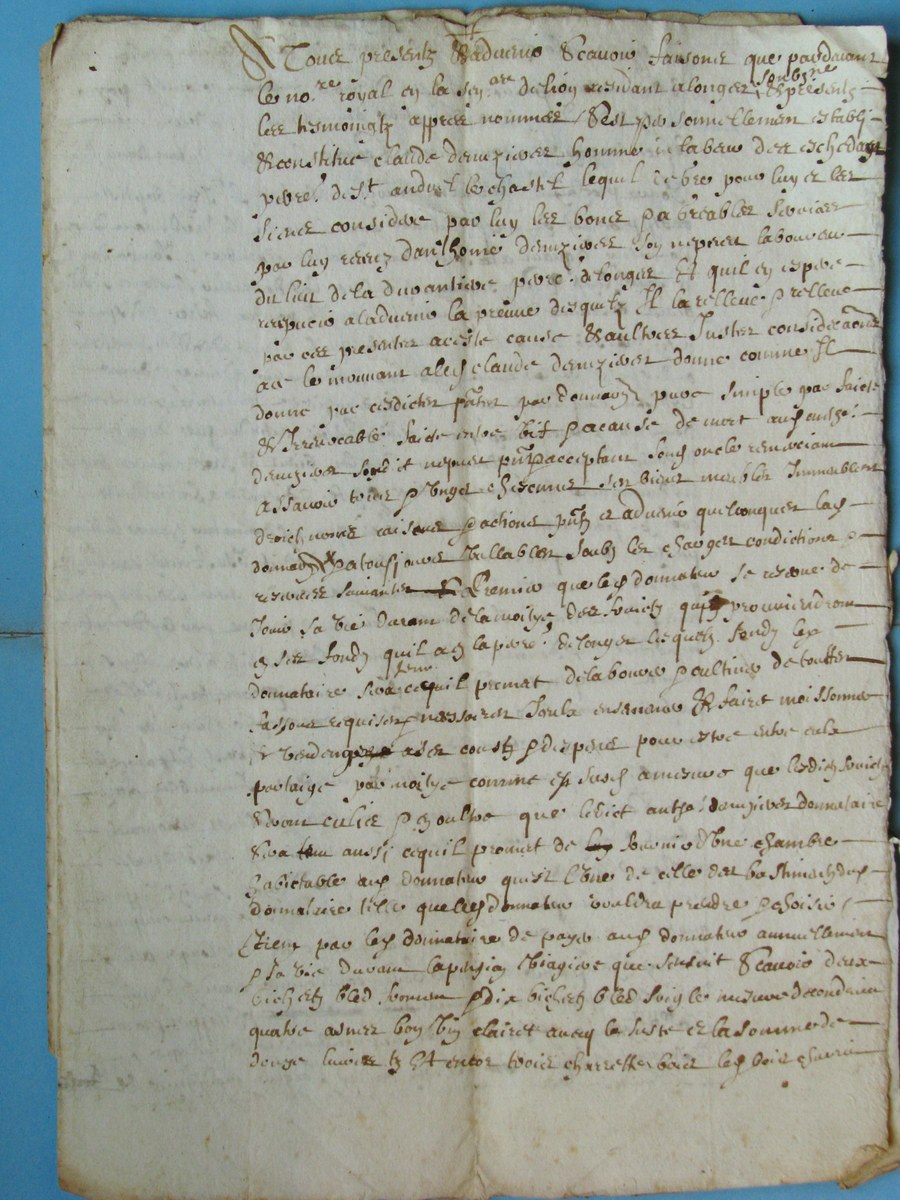 A Tous presentz & advenir scavoir faisons que pardevant
le no.re royal en la sen.ee de lion residant a longes soubzne & presentz
les tesmoingtz appres nommes s'est personnellement establi
& constitue claude demeziers homme de labeur des eschedaux
perre. de st. andre le chastel lequel de gre pour luy et les
siens considere par luy les bons & agreables services
par luy receuz d'anthoine demezieres son nepveu laboureur
du lieu de la durantiere perre. de longes et quil en espere
recepvoir a ladvenir la preuve desquelz Il la relleve & relleve
par ces presentes a ceste cause & aultres Justes considerations
ad ce le mouvant a led claude demezieres donne comme Il
donne par cesdictes pntes par donnaon pure simple parfaicte
& Irrevocable faicte entre vifz & a cause de mort aud anthe.
demezieres sond nepveu pnt & acceptant sond oncle remerciant
assavoir tous & ungs chescungs ses biens meubles Immeubles
droictz noms raisons & actions pntz et advenir quelconques lad
donnaon & a tousjours vallables soubz les charges condictions &
reserves suivantes Premier que led donnateur se reserve de
Jouir sa vie durant de la moitye des fruictz qui proviendront
en ses fondz quil a en la perre. de longes lesquelz fondz led
donnataire sera tenu ce quil promet de labourer & cultiver de touttes
fassons requises & necessaires Iceulx ensemencer & faire moissonner
& vendenger a ses coustz & despens pour estre entre eulx
partaige par moitye comme est susd a mesure que lesdictz fruictz
seront culies & en oultre que ledict anthe. demezieres donnataire
sera aussi ce quil promet de fournir d'une chambre
habictable aud donnateur qui est l'une de celle des bastimentz dud
donnataire telle que led donnateur vouldra prendre & choisir
Item par led donnataire de payer aud donnateur annuellement
& sa vie durant la pension viagere que sensuit scavoir deux
bichetz bled froment & dix bichetz bled seigle mesure de condrieu
quatre asnees bon vin clairet avecq le fuste et la somme de
douze livres tz Et encor trois charrettes bois led bois